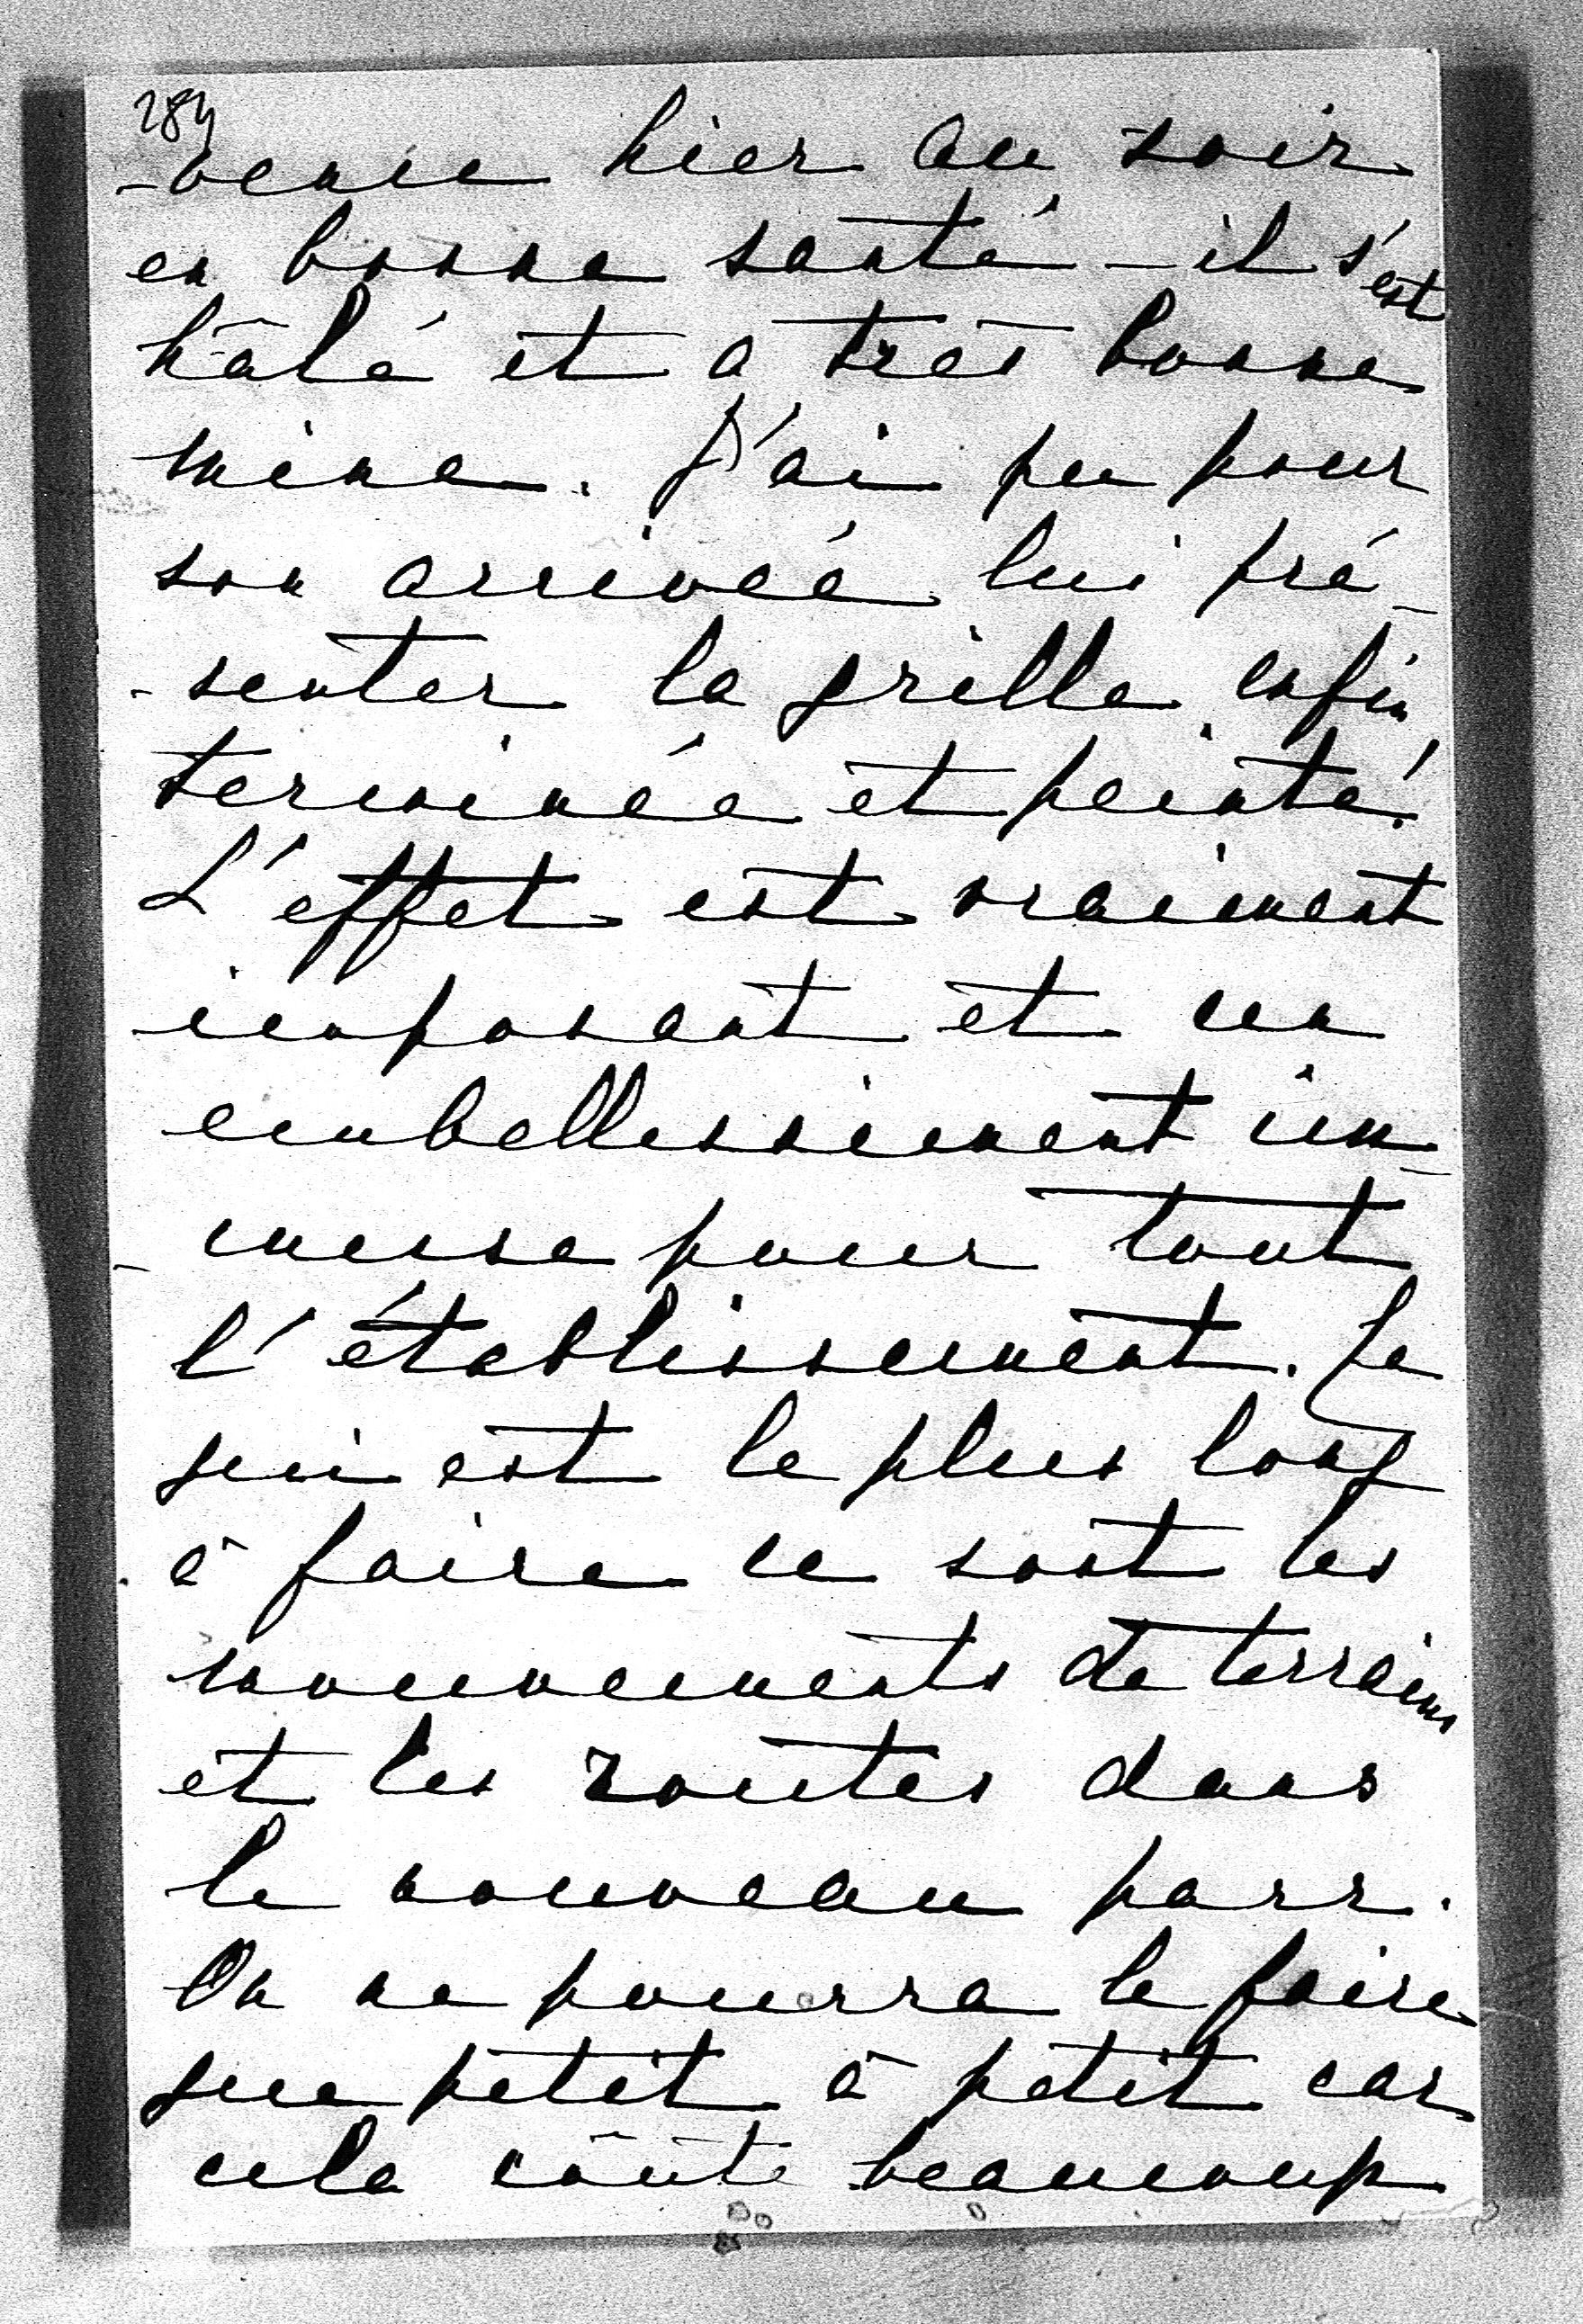 284
-venu hier au soir
en bonne santé – il s'est
hâlé et a très bonne
mine. J'ai pu pour
son arrivée lui pré-
-senter la grille enfin
terminée et peinte!
L'effet est vraiment
imposant et un
embellissement im-
-mense pour tout
l'établissement. Ce
qui est le plus long
à faire ce sont les
mouvements de terrains
et les routes dans
le nouveau parc.
On ne pourra le faire
que petit à petit car
cela coûte beaucoup